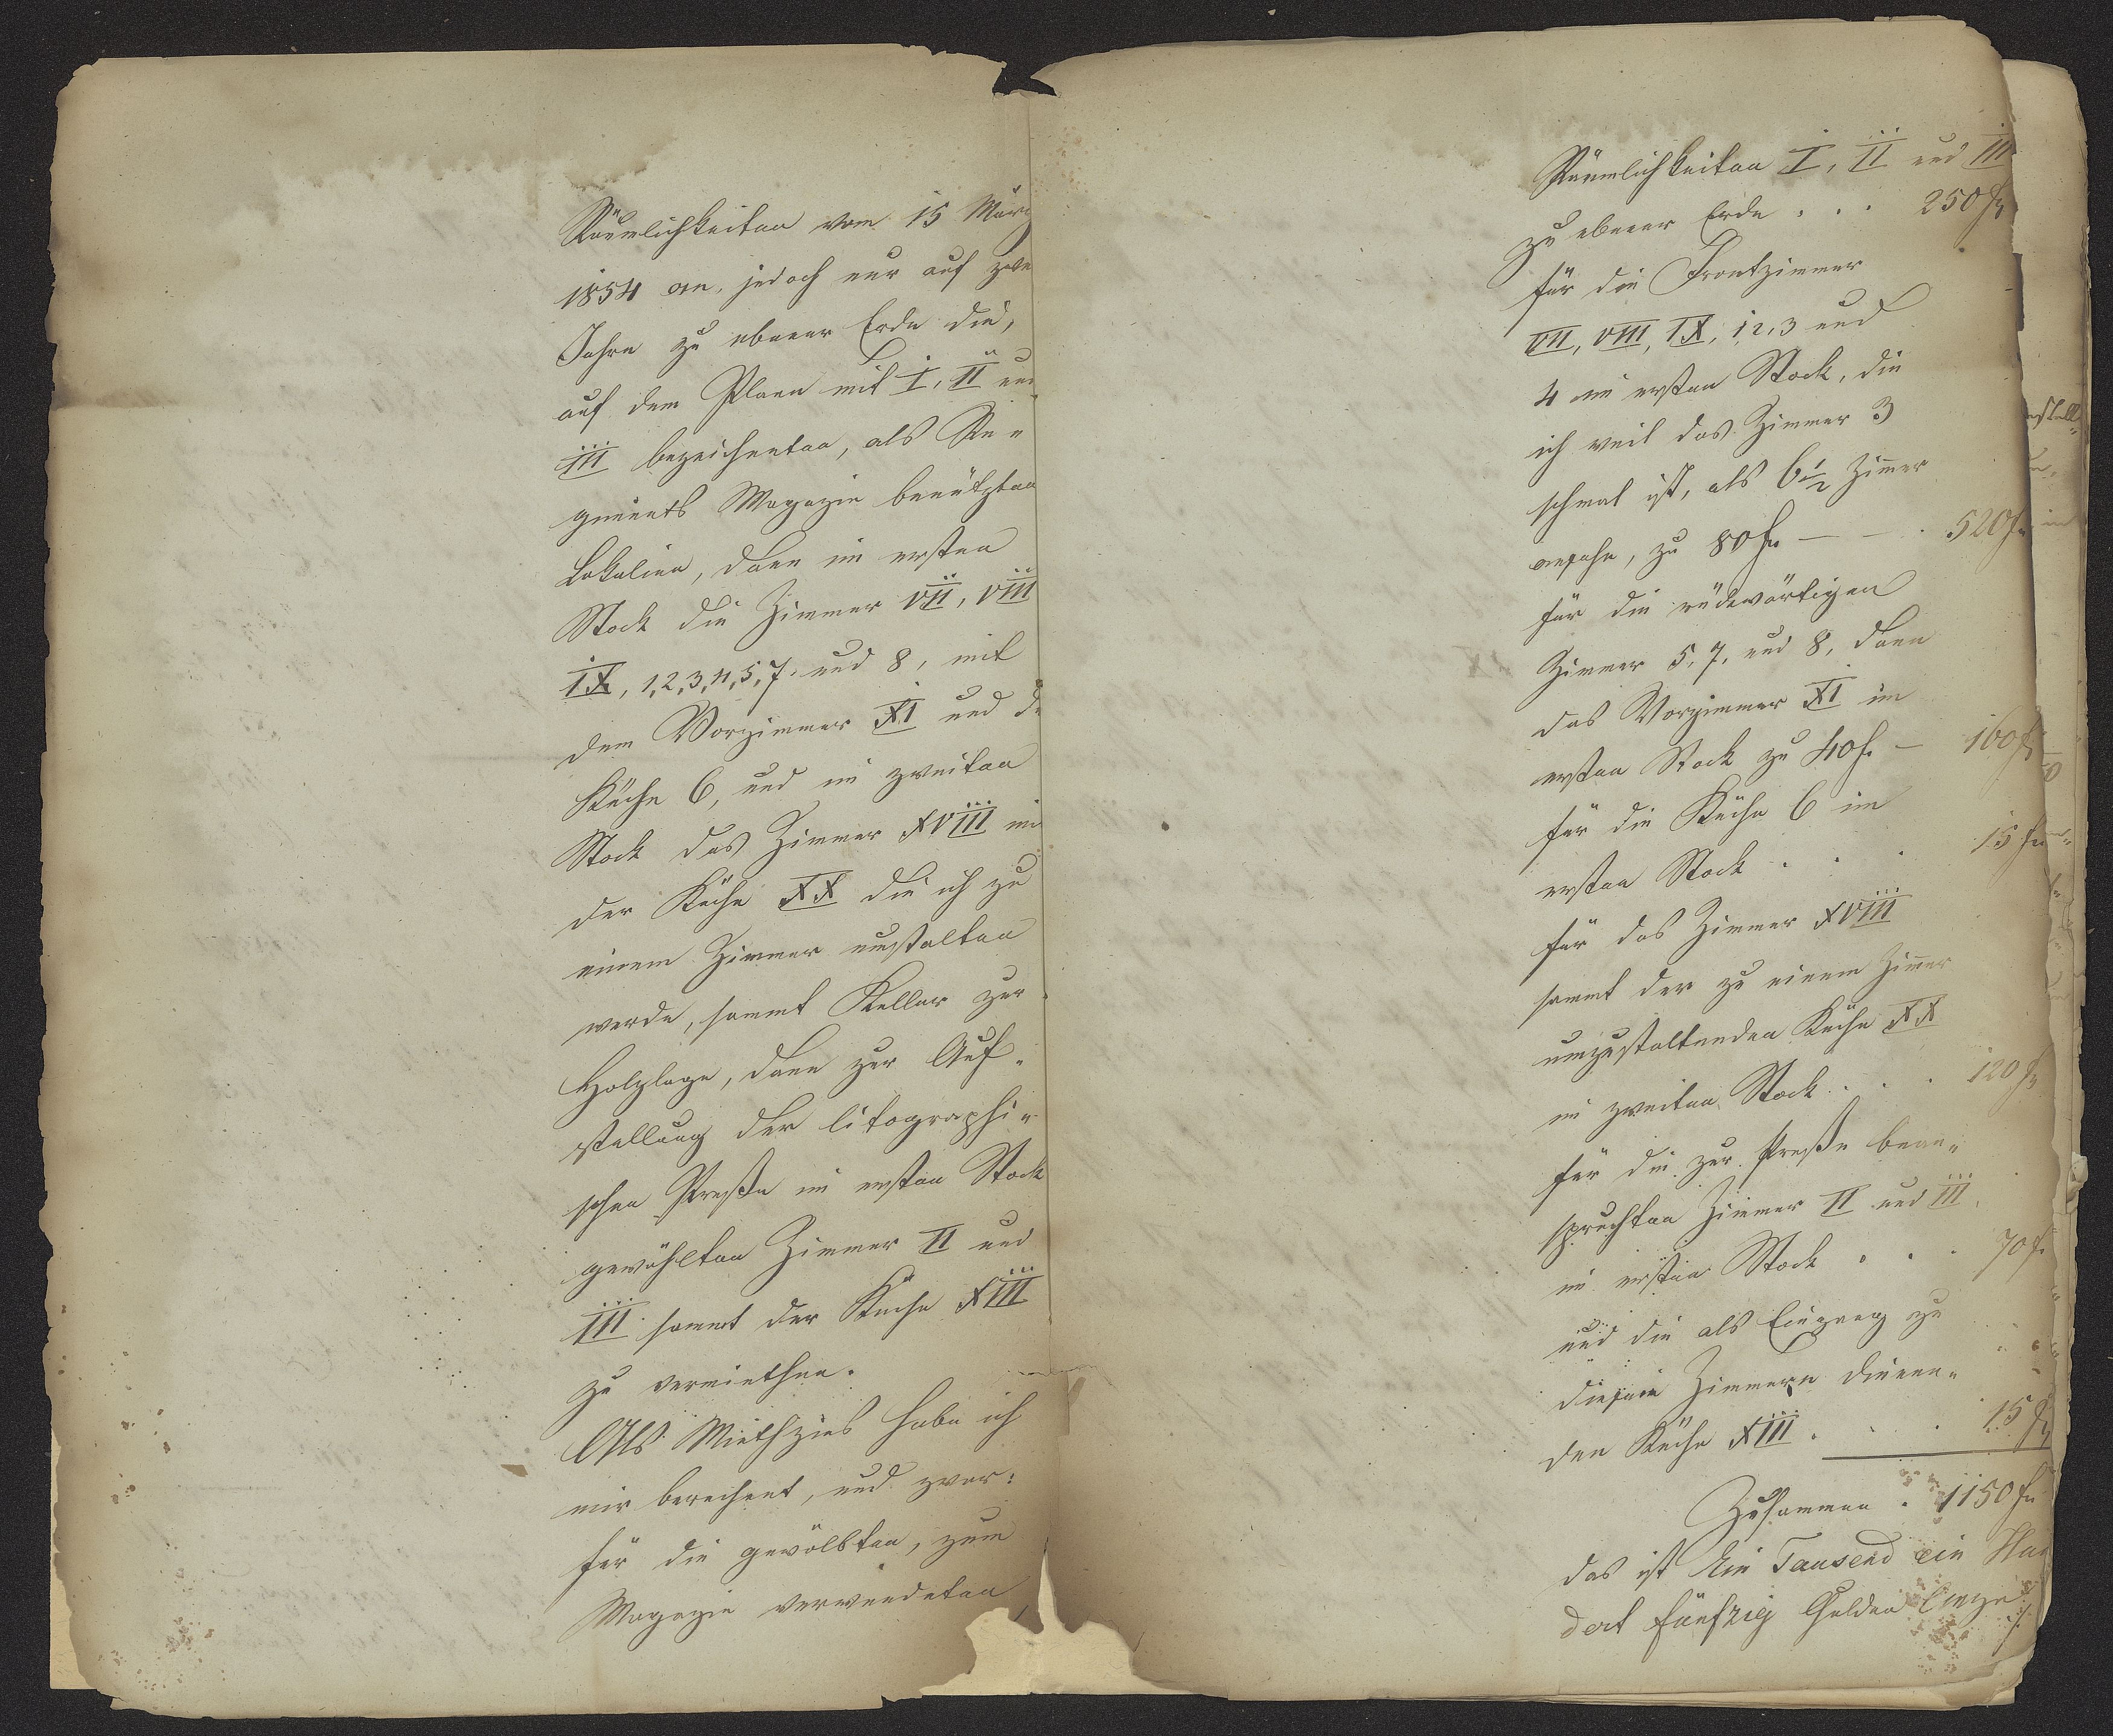 Räumlichkeiten vom 15 März
1854 an, jedoch nur auf zwei
Jahre zu ebener Erde die,
auf dem Plane mit I, II und
III bezeichneten, als Re-
giments Magazin benützten
Lokalien, dann im ersten
Stock die Zimmer VII, VIII
IX, 1,2,3,4,5,7. und 8, mit
dem Vorzimmer XI und de
Küche 6, und im zweiten
Stock das Zimmer XVIII mi
der Küche XX die ich zu
einem Zimmer umstalten
werde, sammt Keller zur
Holzlage, dann zur Auf-
stellung der litographi-
schen Preße im ersten Stock
gewählten Zimmer II und
III sammt der Küche XIII
zu vermiethen.
Als Miethzins habe ich
mir berechnet, und zwar:
für die gewölbten, zum
Magazin verwendeten
Räumlichkeiten I, II und III
zu ebener Erde . . . 250 f
für die Frontzimmer
VII, VIII, IX, 1 2, 3 und
4 im ersten Stock, die
ich weil das Zimmer 3
schmal ist, als 6 1/2 Zimer
ansehe, zu 80 f. — — . 520 f
für die rückwärtigen
Zimmer 5, 7, und 8, dann
das Vorzimmer XI im
ersten Stock zu 40 f. — 160 f
für die Küche 6 im
ersten Stock . . . 15 f
für das Zimmer XVIII
sammt der zu einem Zimer
umzustaltenden Küche XX
im zweiten Stock . . . 120 f
für die zur Preße bean-
spruchten Zimmer II und III
im ersten Stock . . . 70 f
und die als Eingang zu
diesen Zimmern dienen-
den Küche XIII . . . 15 f
Zusammen . 1150 f
das ist Ein Tausend ein Hun
dert fünfzig Gulden